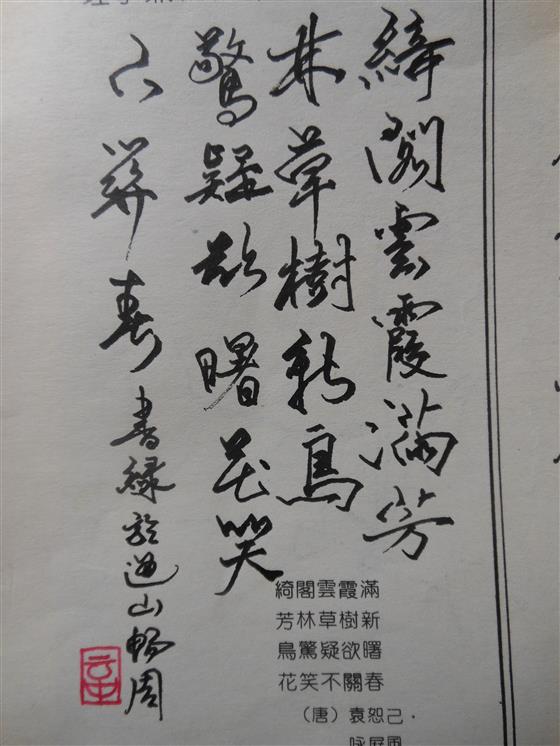 綺閣雲霞滿芳
林草樹新鳥
驚疑欲曙花笑
不關春 書緣於山暢周
綺閣雲霞滿
芳林草樹新
鳥驚疑欲曙
花笑不關春
（唐）袁恕己·
咏屏風